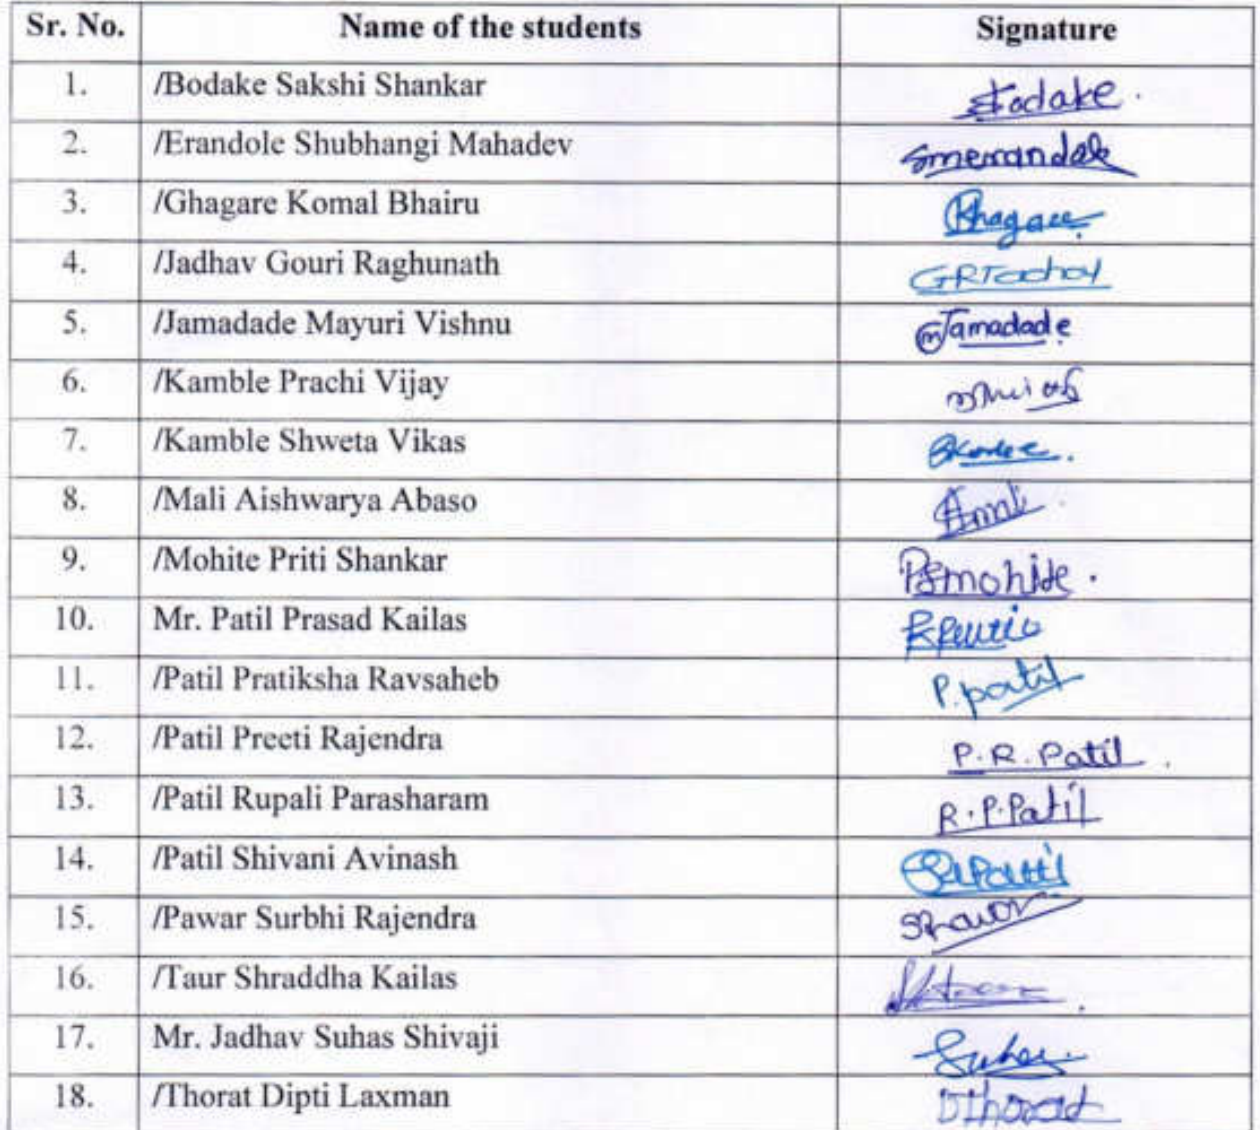 Sr. No. Name of the students Signature
1. /Bodake Sakshi Shankar
2. /Erandole Shubhangi Mahadev
3. /Ghagare Komal Bhairu
4. /Jadhav Gouri Raghunath
5. /Jamadade Mayuri Vishnu Jamadade
6. /Kamble Prachi Vijay
7. /Kamble Shweta Vikas
8. /Mali Aishwarya Abaso
9. /Mohite Priti Shankar PSmohite.
10. Mr. Patil Prasad Kailas
11. /Patil Pratiksha Ravsaheb P.patil
12. /Patil Preeti Rajendra P.R.Patil.
13. /Patil Rupali Parasharam R.P.Patil
14. /Patil Shivani Avinash
15. /Pawar Surbhi Rajendra
16. /Taur Shraddha Kailas
17. Mr. Jadhav Suhas Shivaji
18. /Thorat Dipti Laxman DThorat